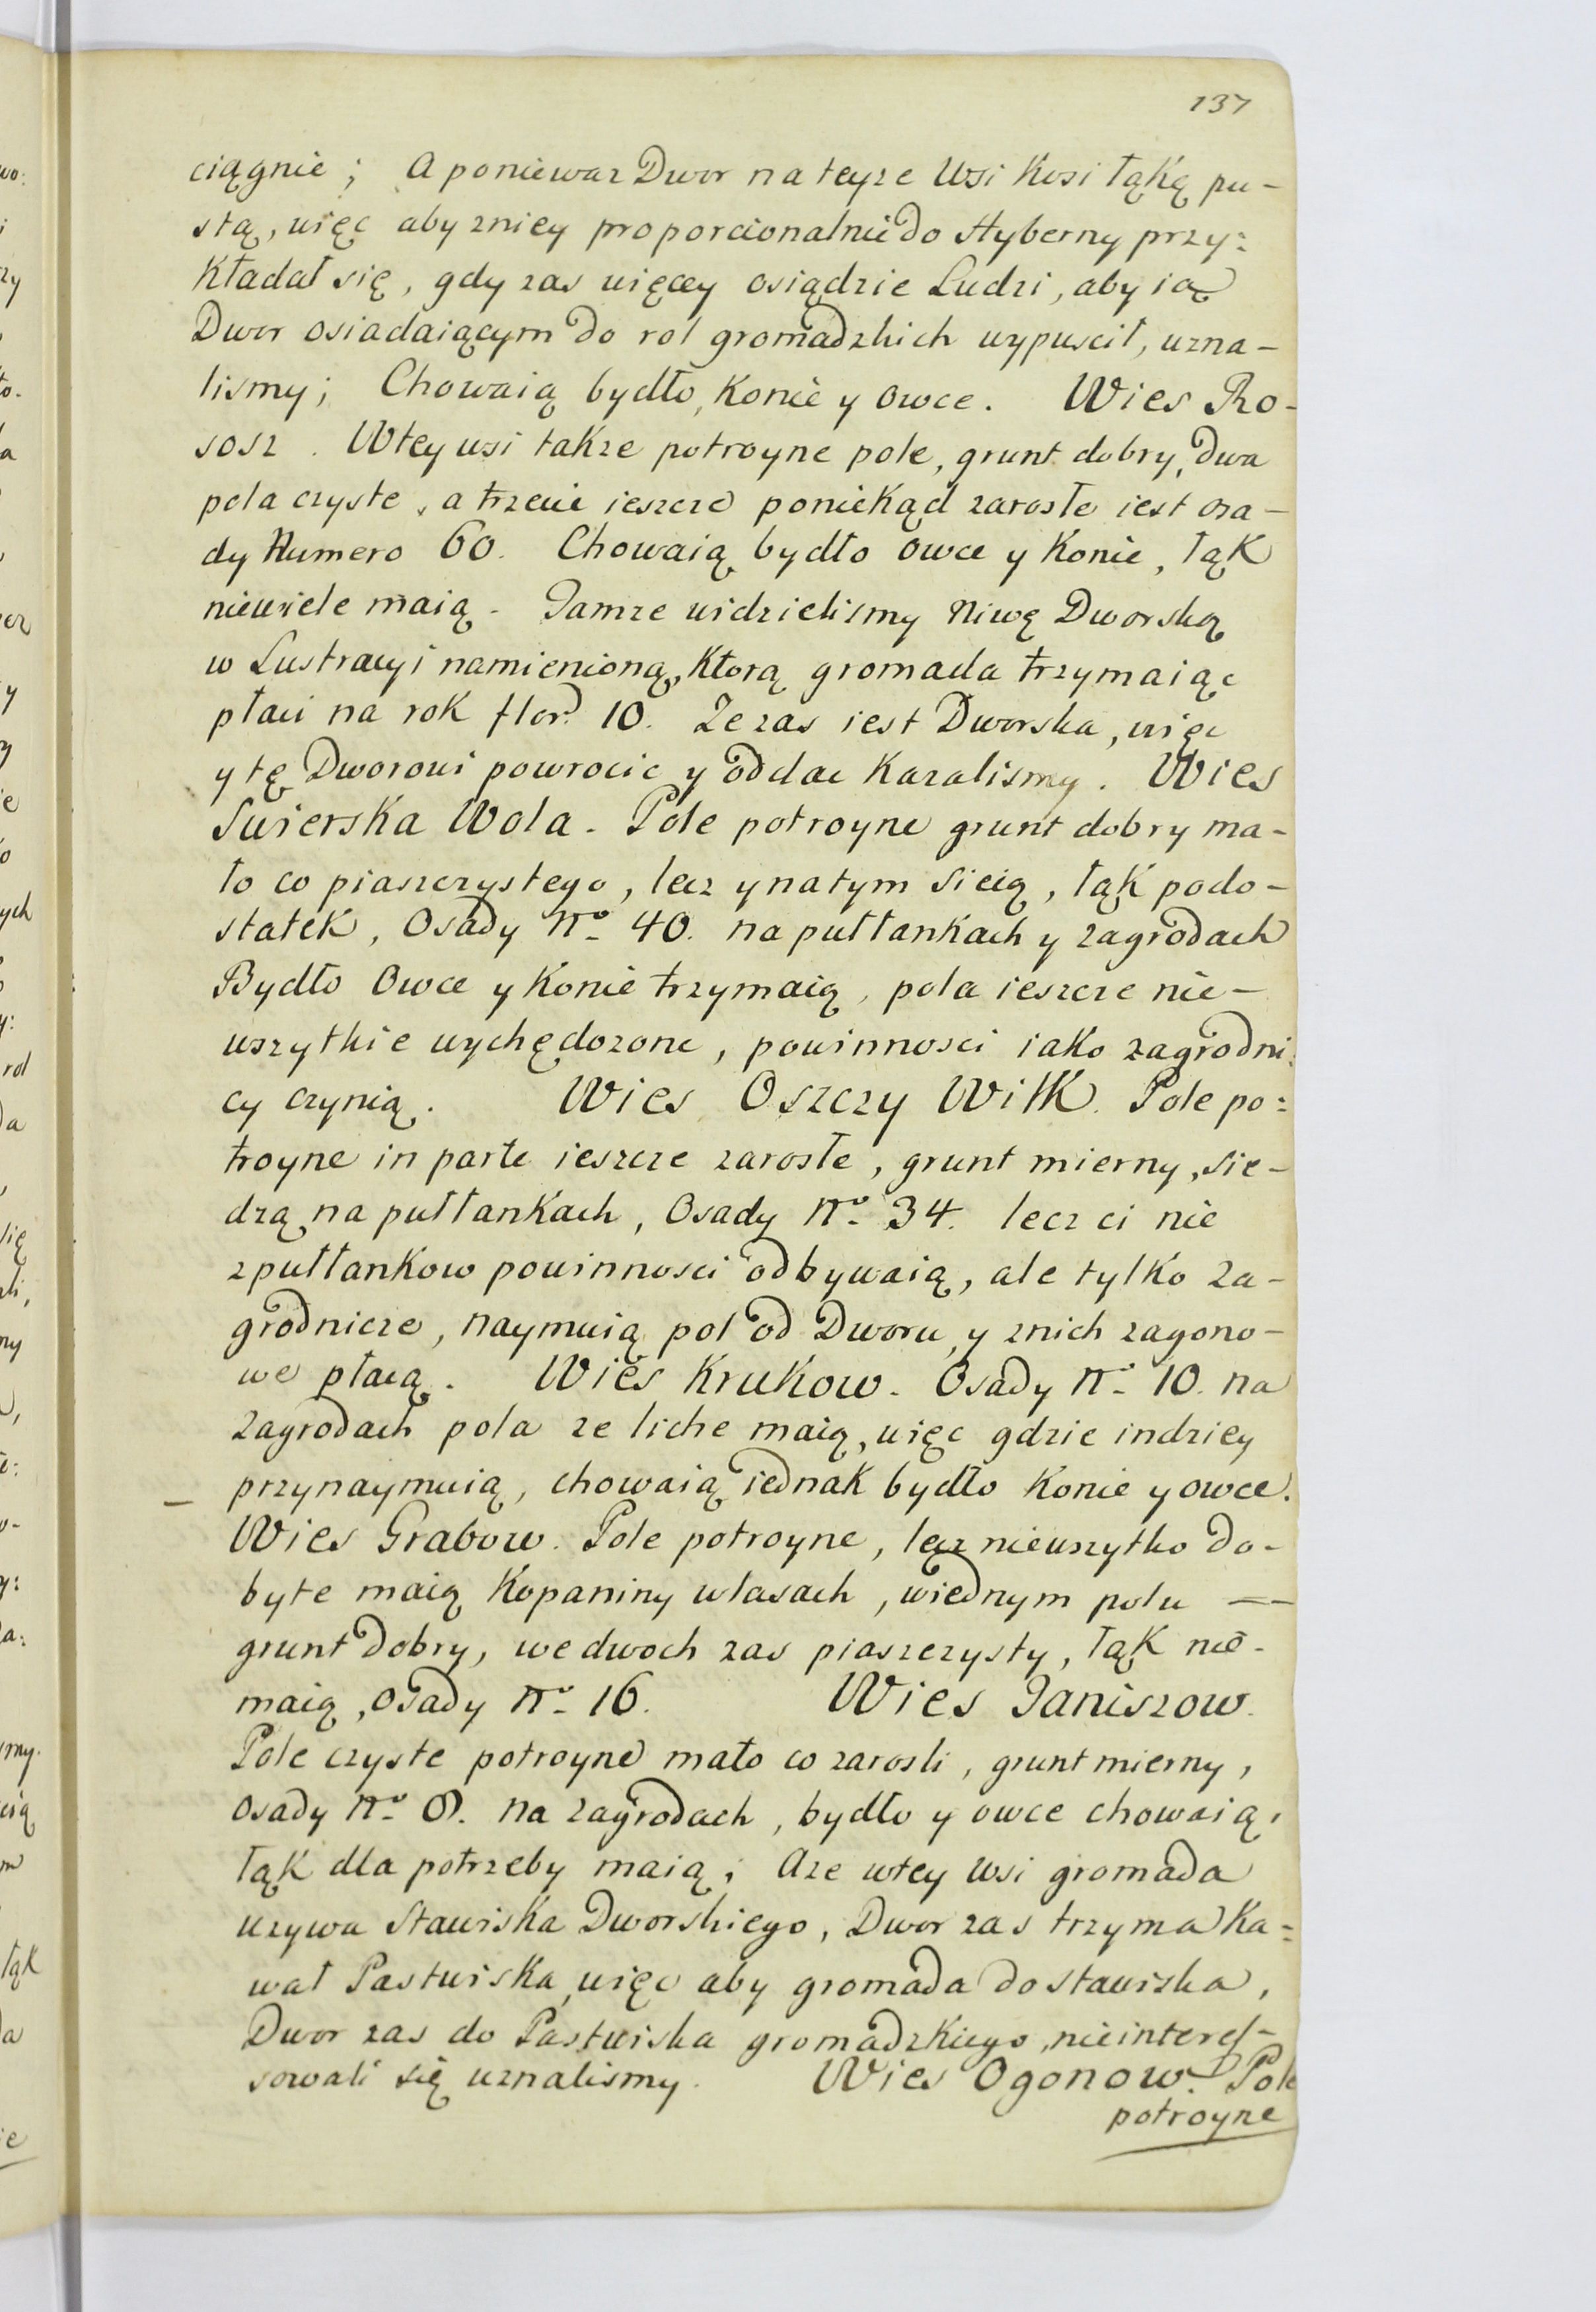 137
ciągnie ; A poniewaz Dwor na teyze Wsi Kosi łąkę pu-
stą, więc aby zniey proporcionalnie do Hyberny przy:
kładał się, gdy zas więcey osiądzie Ludzi, aby ią
Dwor osiadaiącym do rol gromadzkich wypuscił, uzna-
lismy ; Chowaią bydło, konie y owce. Wies Ro-
sosz . W tey wsi takze potroyne pole, grunt dobry, dwa
pola czyste, a trzecie ieszcze poniekąd zarosłe iest osa-
dy Numero 60. Chowaią bydło owce y konie, łąk
niewiele maią . Tamze widzielismy Niwę Dworską
w Lustracyi namienioną, ktorą gromada trzymaiąc
płaci na rok flor. 10. Ze zas iest Dworska, więc
y tę Dworowi powrocic y oddac kazalismy. Wies
Swierska Wola . Pole potroyne grunt dobry ma-
ło co piaszczystego, lecz y na tym sieią, łąk podo-
statek, Osady No 40. na pułłankach y zagrodach
Bydło Owce y Konie trzymaią, pola ieszcze nie-
wszytkie wychędozone, powinnosci iako zagrodni:
cy czynią . Wies Oszczy Wilk. Pole po:
troyne in parte ieszcze zarosłe, grunt mierny, sie-
dzą na pułłankach, Osady No 34. lecz ci nie
z pułłankow powinnosci odbywaią, ale tylko za-
grodnicze, naymuią pol od Dworu, y znich zagono-
we płacą . Wies Krukow . Osady No 10. na
zagrodach pola ze liche maią, więc gdzie indziey
przynaymuią, chowaią iednak bydło konie y owce.
Wies Grabow . Pole potroyne, lecz niewszytko do-
byte maią Kopaniny w lasach, w iednym polu —
grunt dobry, we dwoch zas piaszczysty, łąk nie-
maią, osady No 16. Wies Janiszow.
Pole czyste potroyne mało co zarosli, grunt mierny,
osady No 8. na zagrodach, bydło y owce chowaią,
łąk dla potrzeby maią ; A ze w tey wsi gromada
uzywa Stawiska Dworskiego, Dwor zas trzyma ka:
wał Pastwiska, więc aby gromada do stawiska,
Dwor zas do Pastwiska gromadzkiego, nieinteres-
sowali się uznalismy. Wies Ogonow. Pole
potroyne